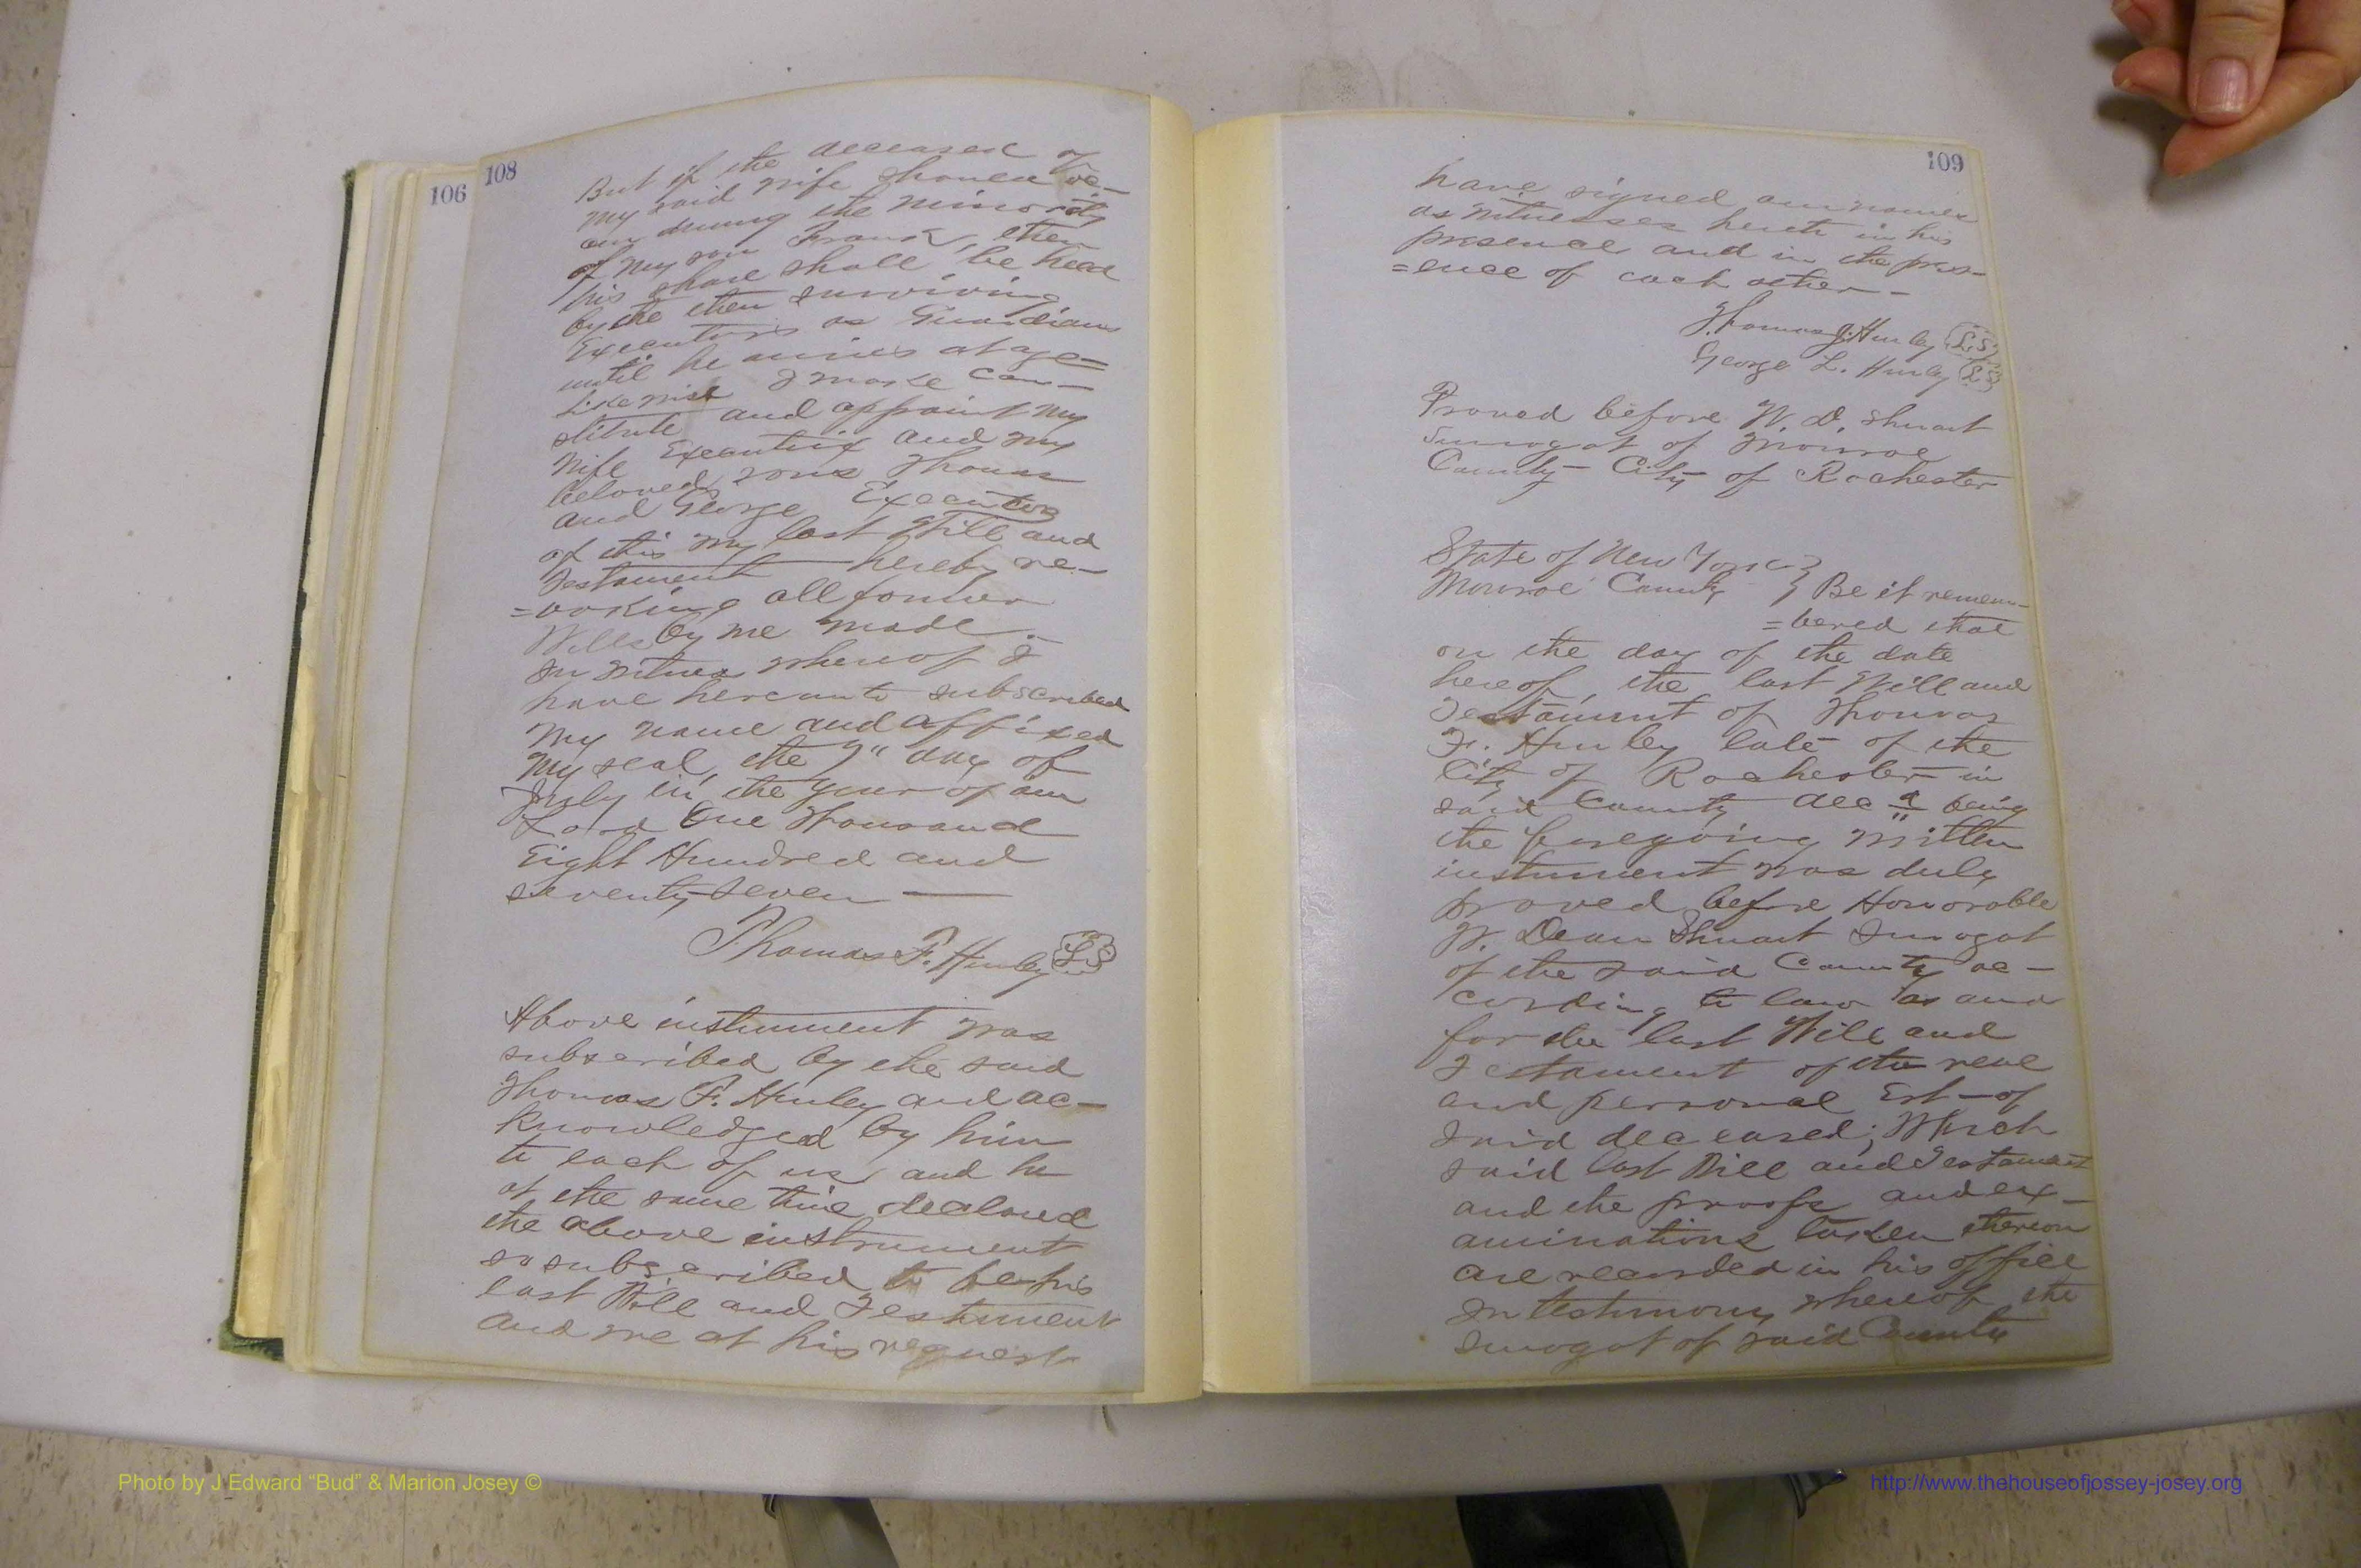 106
108
But if the deceased of
my said wife should oc-
cur during the minority
of my son Frank, then
his share shall be held
by the then surviving
Executors as Guardians
until he arrives at age
Likewise I make con-
stitute and appoint my
Wife Executrix and my
beloved sons Thomas
and George Executors
of this my last Will and
Testament hereby re-
=voking all former
Wills by me made.
In witness whereof I
have hereunto subscribed
my name and affixed
my seal the day of
July in the year of our
Lord One Thousand
Eight Hundred and
seventy-seven
Thomas F. Hurley L.S
Above instrument was
subscribed by the said
Thomas F. Hurley and ac-
knowledged by him
to each of us and he
at the same time declared
the above instrument
so subscribed to be his
last Will and Testament
and we at his request
109
have signed our names
as witnesses hereto in his
presence and in the pres-
=ence of each other-
Thomas J. Hurley L.S.
George L. Hurley L.S
Proved before W. D. Shuart
Surrogat of Monroe
County - City of Rochester
State of New York }
Monroe County } Be it remem-
=bered that
on the day of the date
hereof, the last Will and
Testament of Thomas
F. Hurley late of the
City of Rochester in
said County decd being
the foregoing written
instrument was duly
proved before Honorable
W. Dean Shuart Surrogat
of the said County ac-
cording to law as and
for the last Will and
Testament of the real
and personal Est - of
said deceased; Which
said last Will and Testament
and the proofs and ex-
aminations taken thereon
are recorded in his office
In testimony whereof, the
Surrogat of said County
Photo by J Edward “Bud” & Marion Josey ©
http://www.thehouseofjossey-josey.org